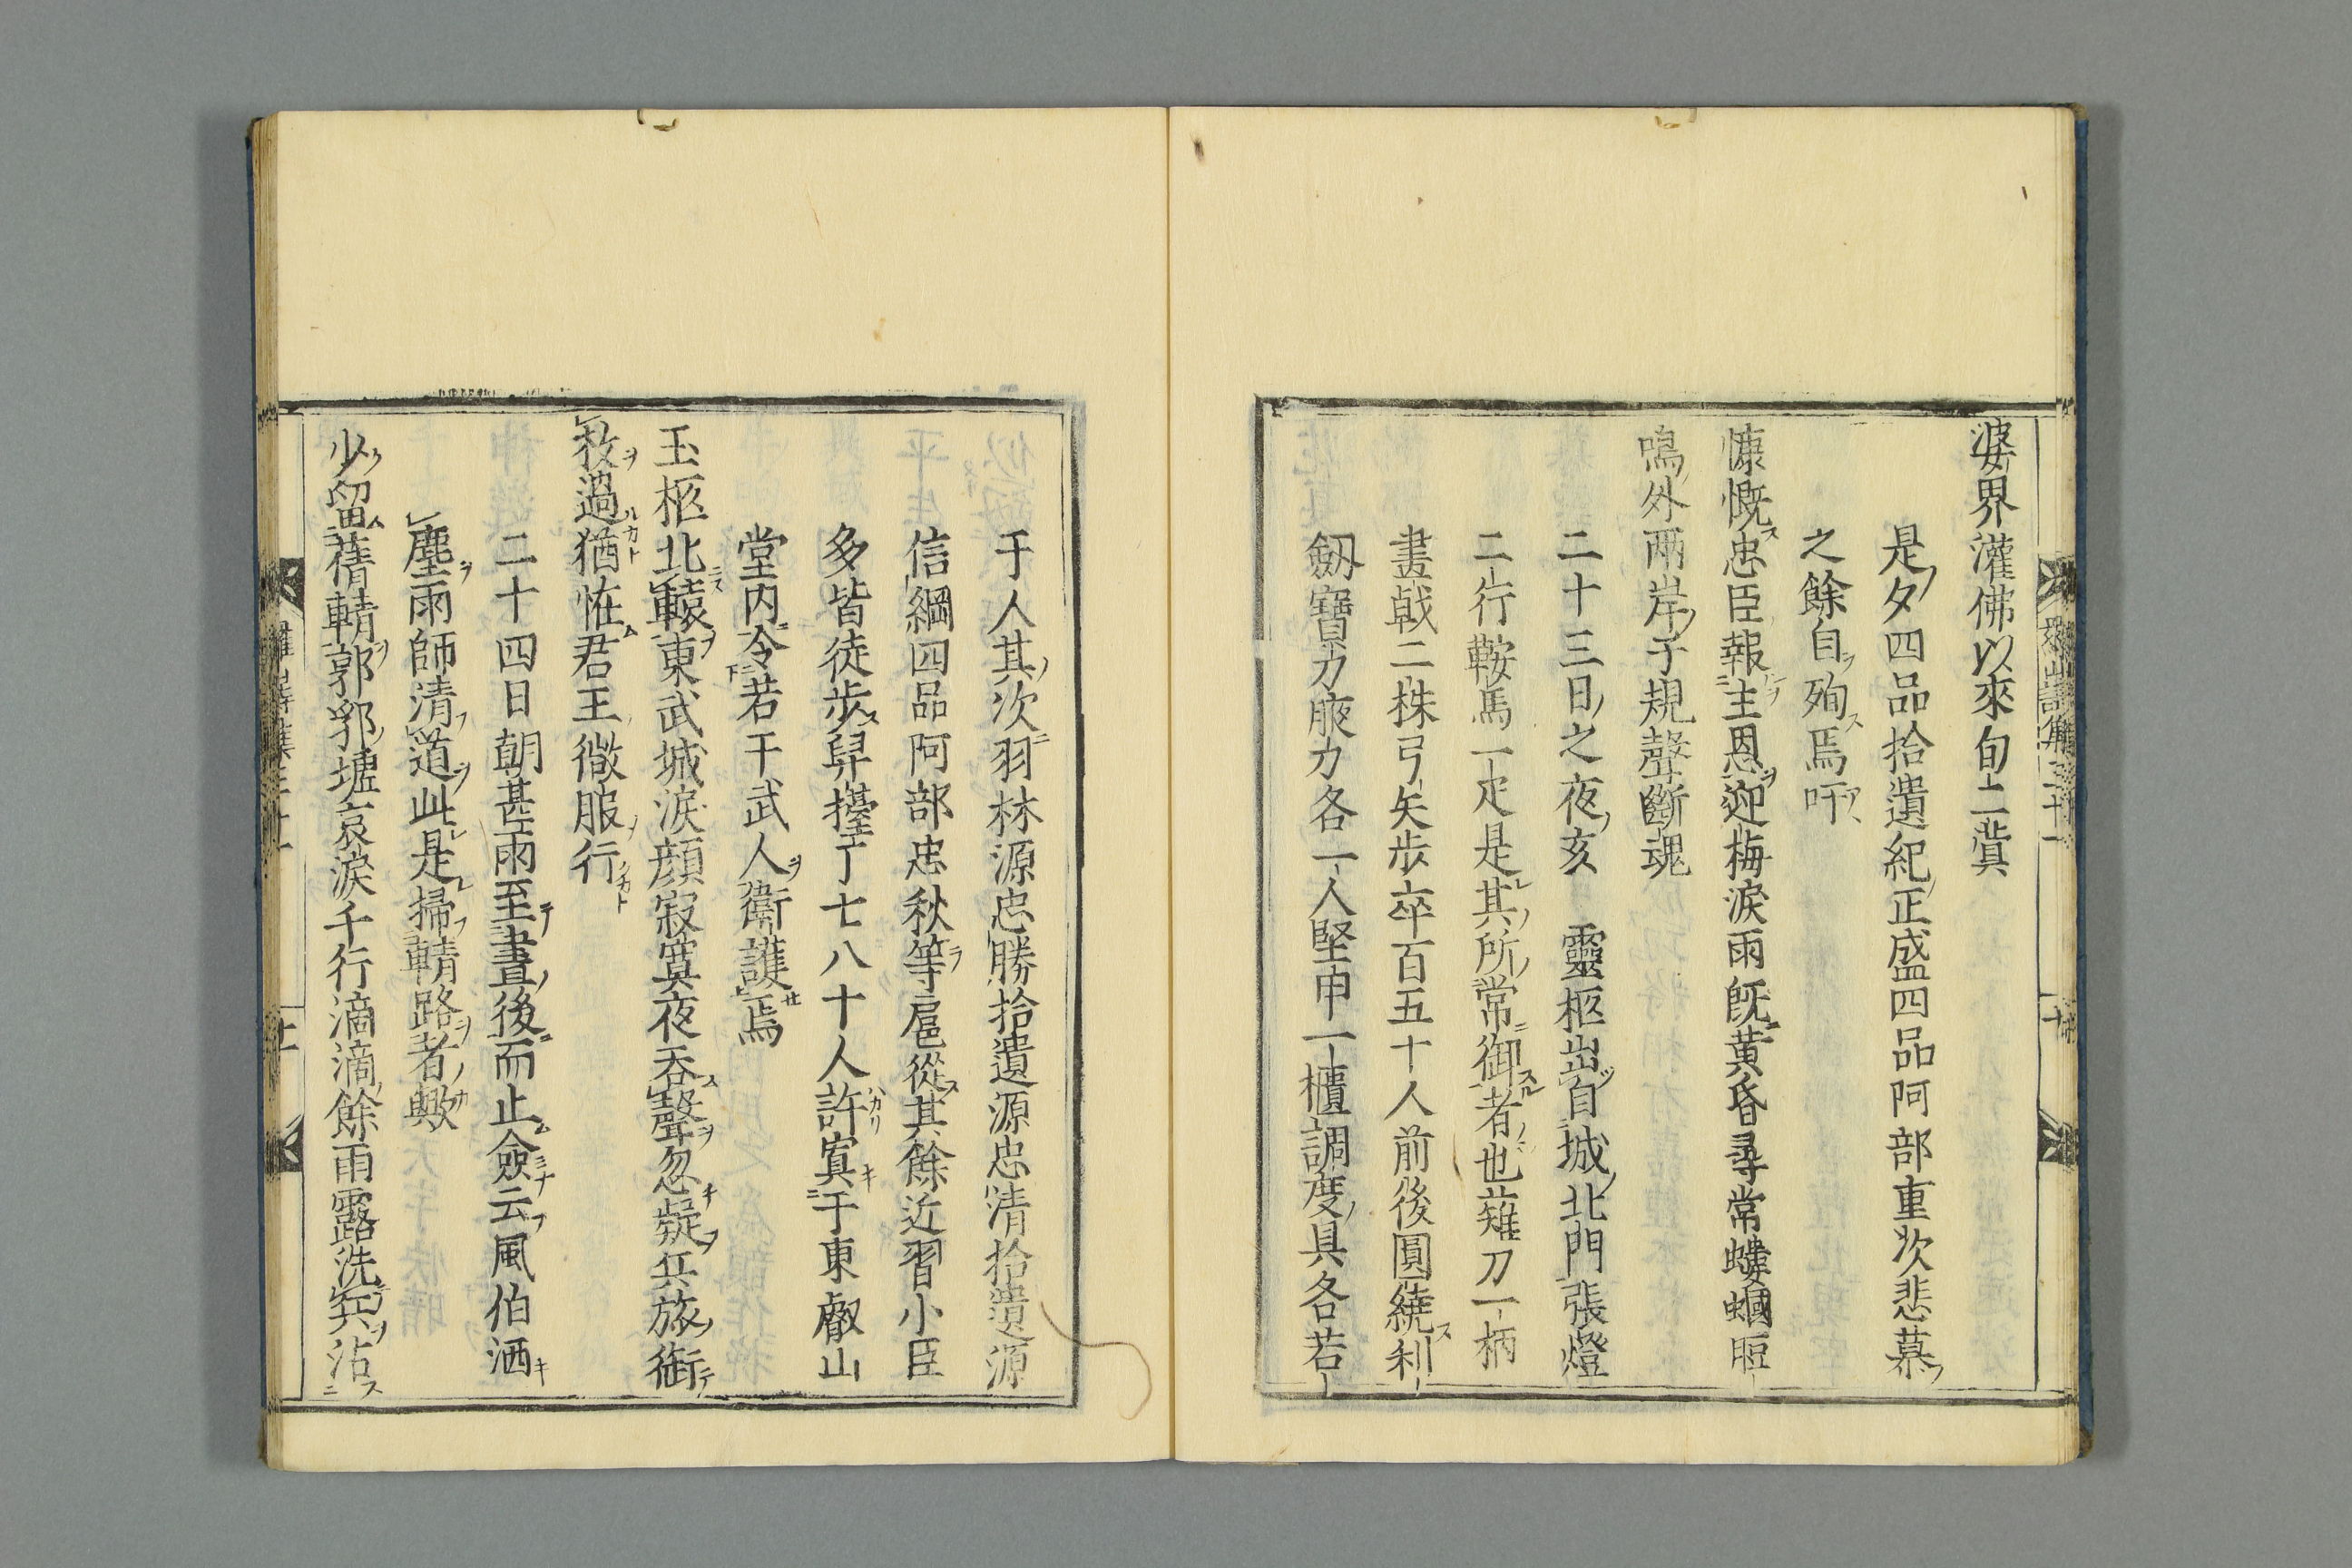 婆界灌佛以來旬二蓂
是夕四品拾遺紀正盛四品阿部重次悲慕
之餘自殉焉吁
慷慨忠臣報主恩迎梅淚雨既黃昏尋常螻蟈脰
鳴外兩岸子規聲斷魂
二十三日之夜亥　靈柩出自城北門張燈
二行鞍馬一疋是其所常御者也薙刀一柄
畫戟二株弓矢步卒百五十人前後圓繞利
劔寶刀腋刀各一人堅甲一櫃調度具各若
干人其次羽林源忠勝拾遺源忠清拾遺源
信綱四品阿部忠秋等扈從其餘近習小臣
多皆徒步舁擡丁七八十人許寘于東叡山
堂內令若干武人衛護焉
玉柩北轅東武城淚顔寂寞夜吞聲忽疑兵旅銜
枚過猶恠君王微服行
二十四日朝甚雨至晝後而止僉云風伯洒
塵雨師清道此是掃輤路者歟
少留蒨輤郭郛墟哀淚千行滴滴餘雨露洗兵沾
羅山詩集三十一
十